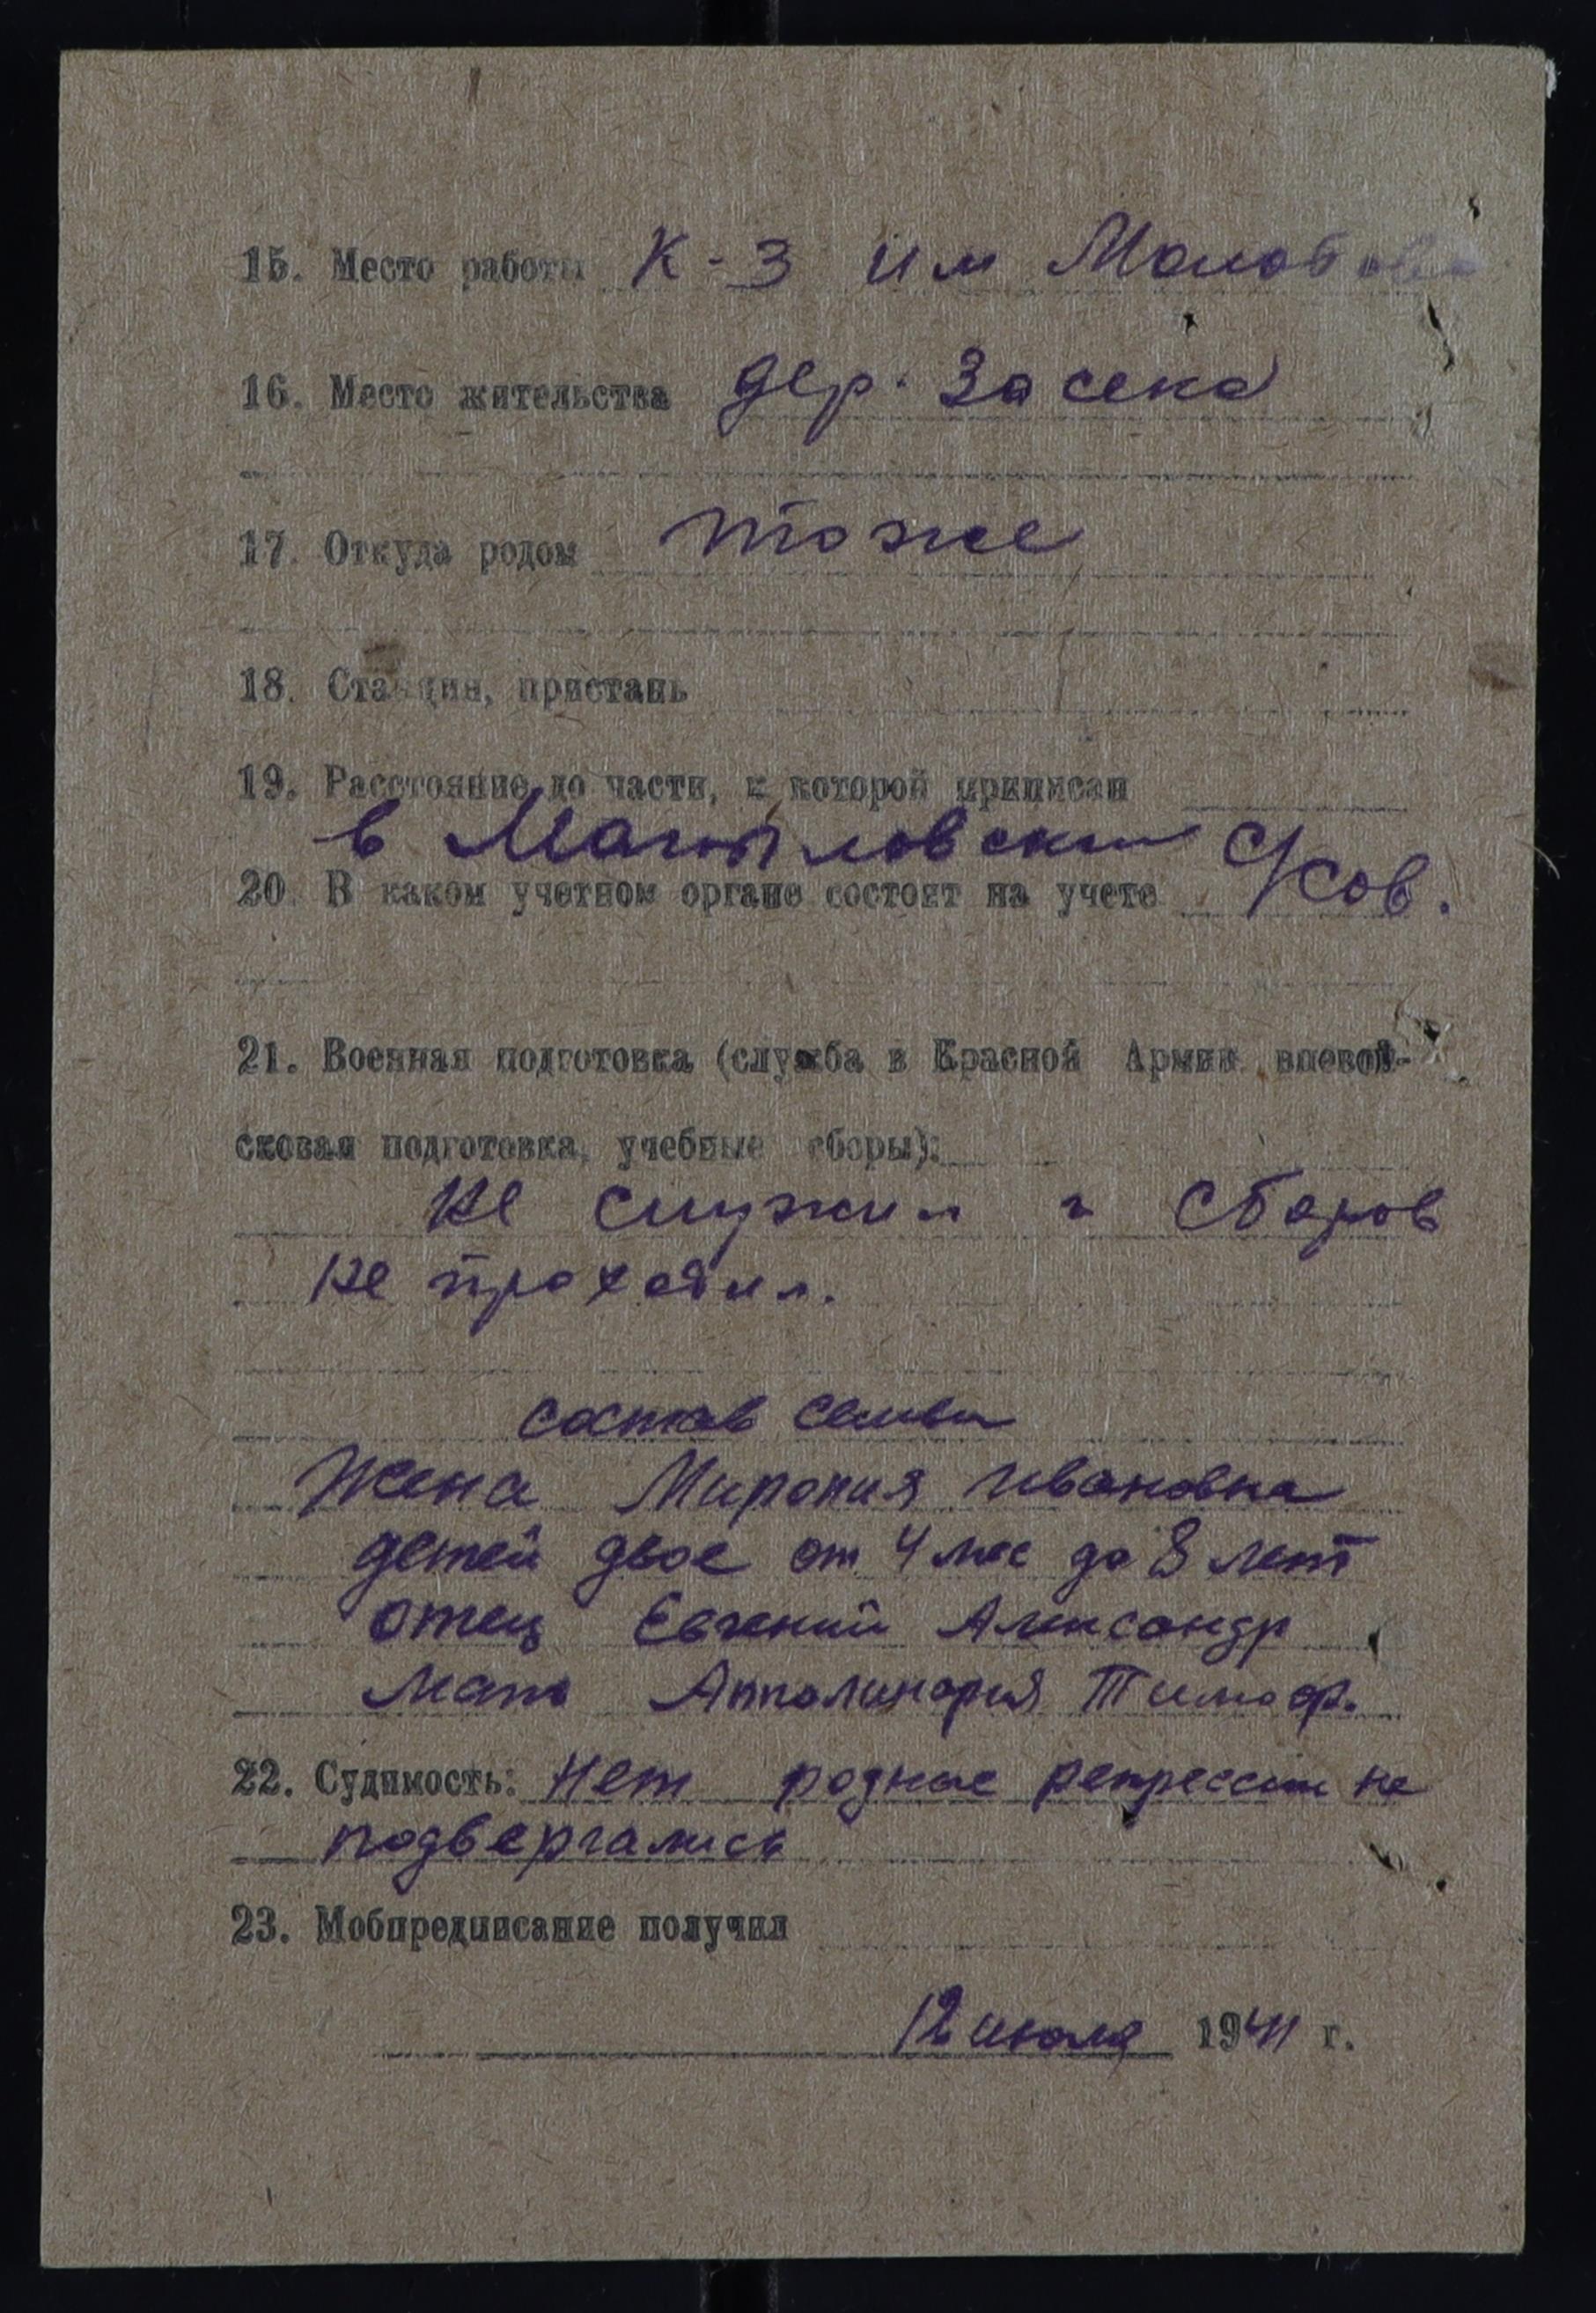 15. Место работы К-З им Молотова
16. Место жительства дер. Засека
17. Откуда родом тоже
18. Станция, пристань
19. Расстояние до части, к которой приписан
в с/сов.
20. В каком учетном органе состоит на учете
21. Военная подготовка (служба в Красной Армии вневой-
сковая подготовка, учебные сборы):
не служил и сборов
не проходил.
состав семьи
Жена Миропия Ивановна
детей двое от 4 мес до 8 лет
отец Евгений Александр
мать Апполинария Тимоф.
22. Судимость: Нет родные репрессии не
подвергались
23. Мобпредписание получил
12 июля 1941 г.